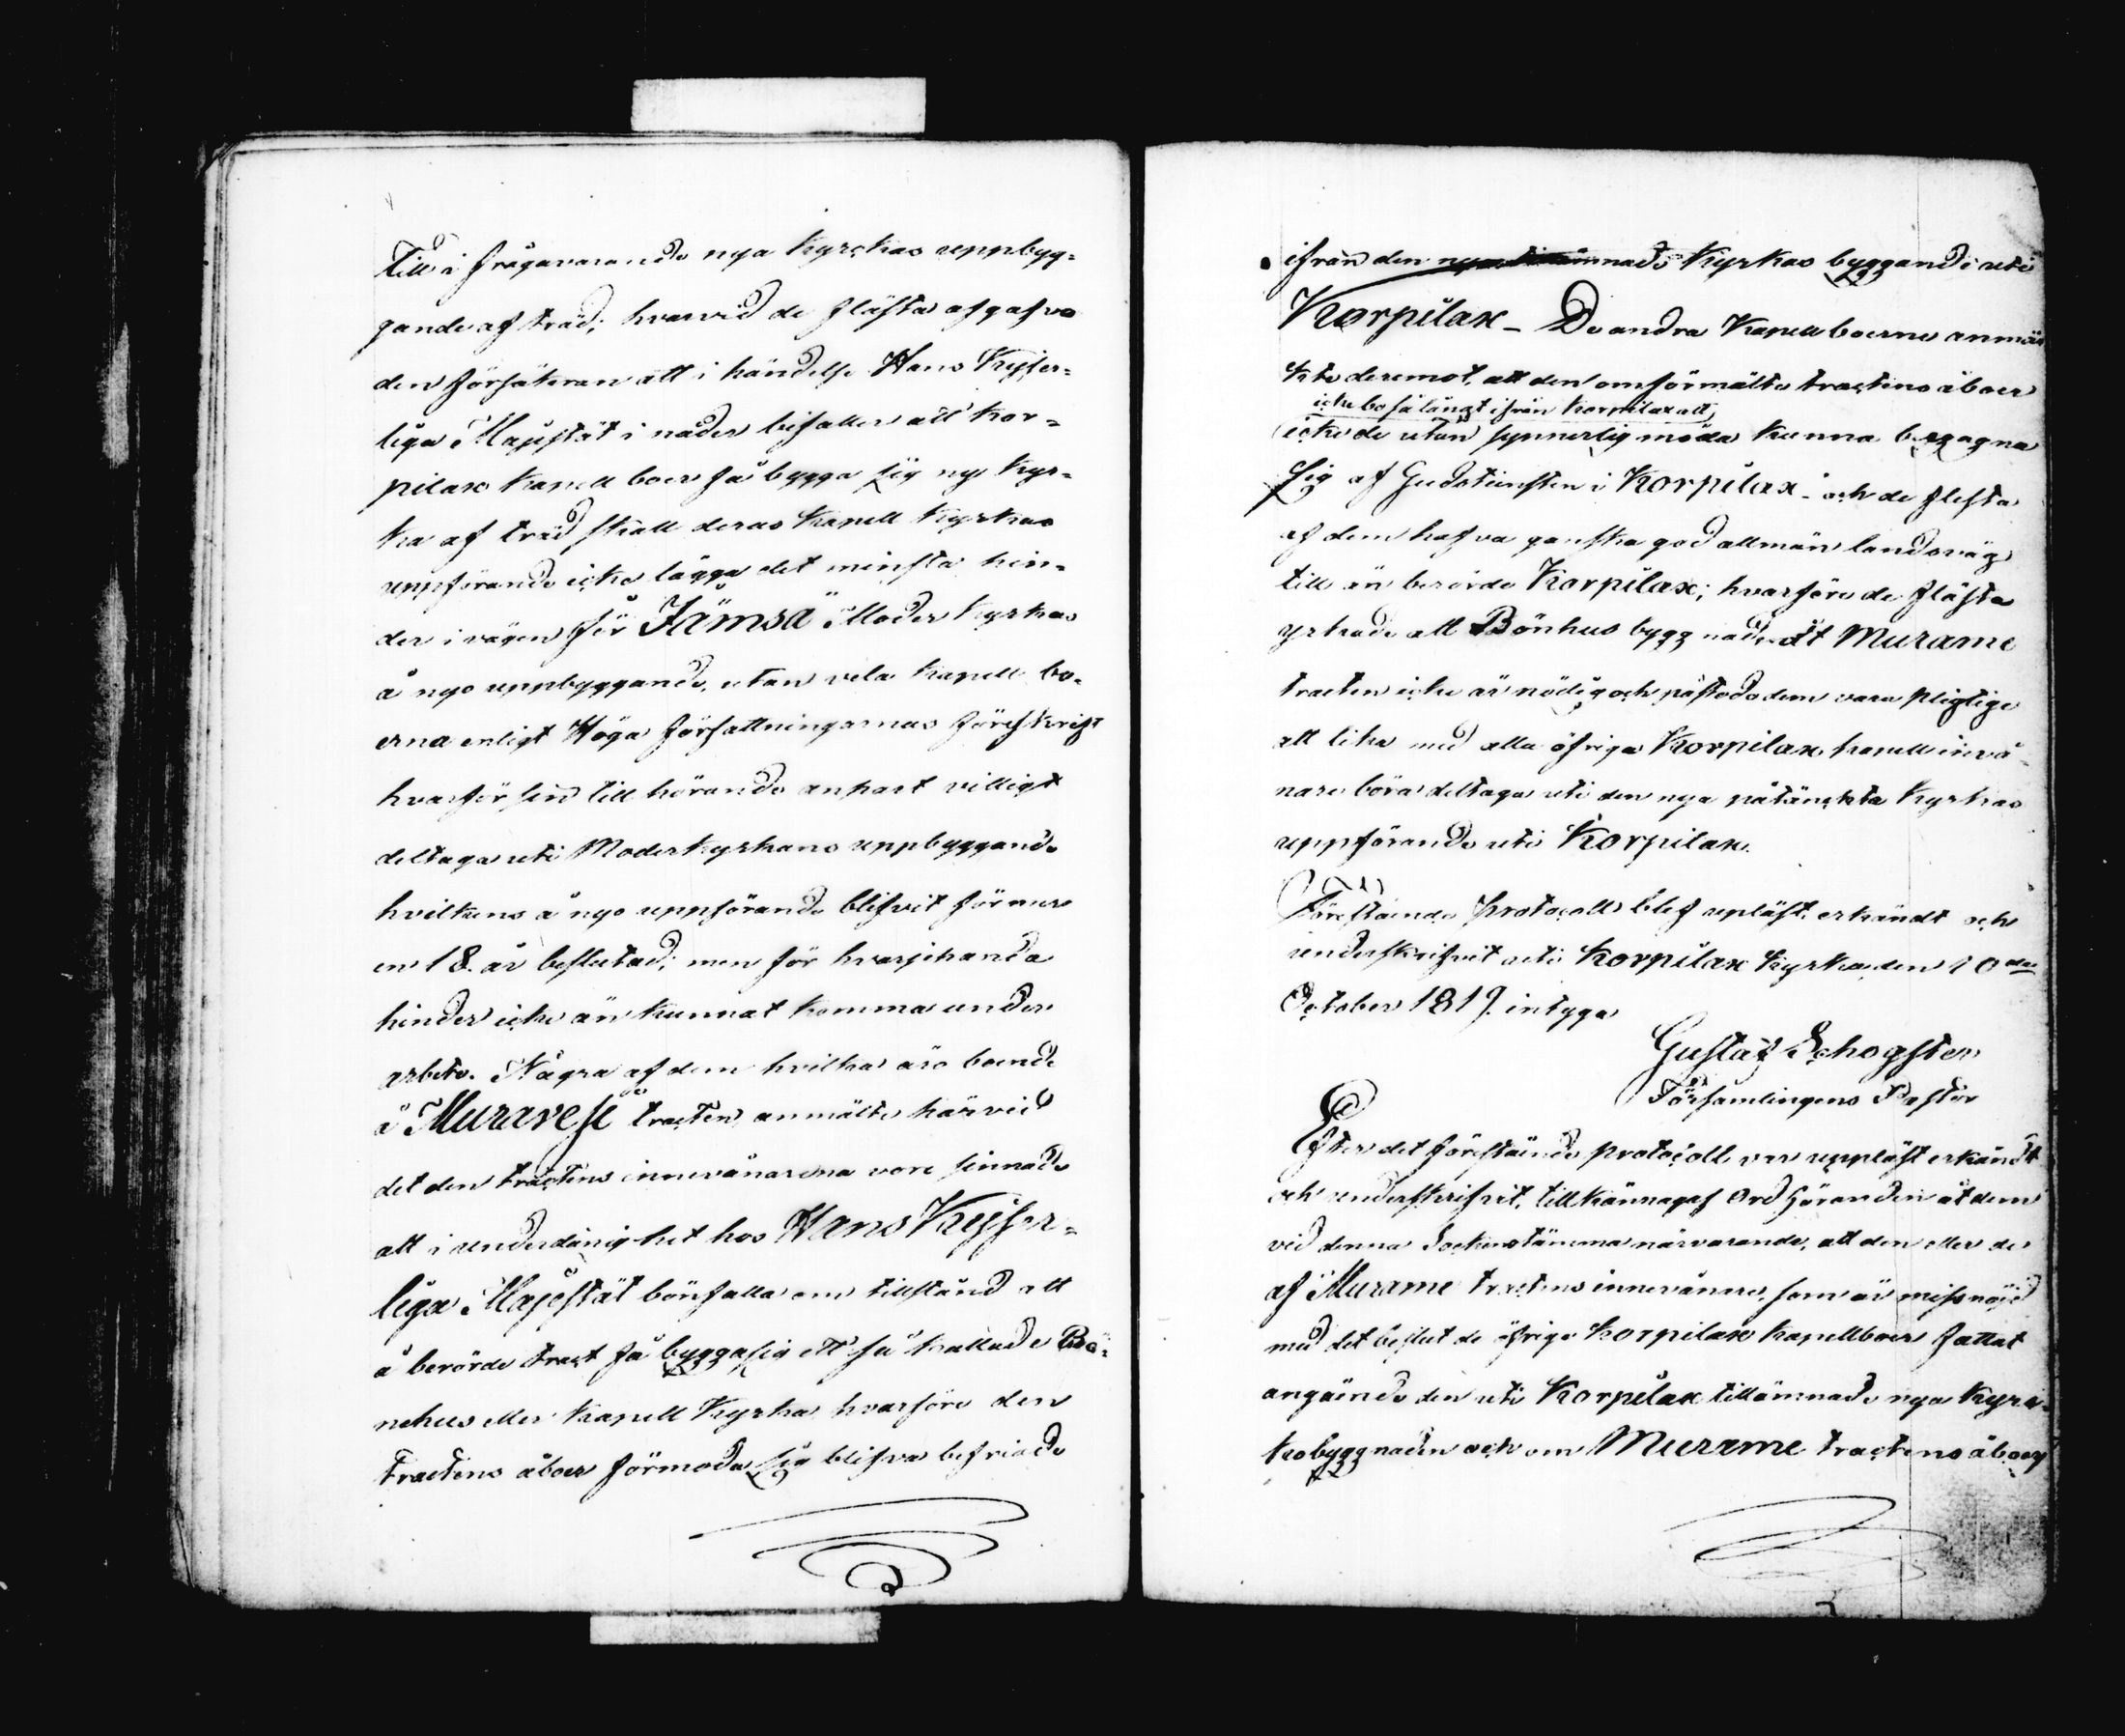 till i frågavarande nya Kyrckas uppbyg-
gande af träd; hvarvid de flästa afgafvo
den försäkran att i händelse Hans Kejser-
liga Majestät i nåder bifaller att Kor-
pilax Kapell boer få bygga sig ny Kyr-
ka af träd skall deras Kapell Kyrkas
uppförande icke lägga det minsta hin-
der i vägen för Jämsä Moder Kyrkas
å nyo uppbyggande, utan vela Kapell bo-
erna enligt Höga Författningarnas föreskrift
hvarför sin tillhörande anpart villigt
deltaga uti Moderkyrkans uppbyggande
hvilkens å nyo uppförande blifvit för mer
en 18. år beslutad; men för hvarjehanda
hinder icke än kunnat komma under
arbete. Några af dem hvilka äro boende
å Muravesi tracten, anmälte härvid
det den tractens innevånarena vore sinnade
att i underdånighet hos Hans Kejser-
liga Majestät bönfalla om tillstånd att
å berörde tract få bygga sig ett så kallade Bö-
nehus eller Kapell Kyrka, hvarföre den
tractens åboer förmoda sig blifva befriade
ifrån den nya tillämnade Kyrkas byggande uti
Korpilax - De andra Kapellboerne anmär
kte deremot, att den omförmälte tractens åboer
icke bo så långt ifrån Korpilax att
icke de utan synnerlig möda kunna begagna
sig af Gudstiensten i Korpilax - och de flesta
af dem hafva ganska god allmän landsväg
till än berörde Korpilax; hvarföre de flästa
yrkade att Bönhus byggnaden åt Murame
tracten icke är nödig och påstodo dem vara pligtige
att lika med alla öfriga Korpilax kapell invå-
nare böra deltaga uti den nya påtänckta Kyrkas
uppförande uti Korpilax.
Förestående Protocoll blef upläst, erkändt och
underskrifvit uti Korpilax Kyrka, den 10de
October 1819. intyga
Gustaf Schogster
Församlingens Pastor
Efter det förestående protocoll var uppläst erkändt
och underskrifvit, tillkännagaf Ordföranden åt dem
vid denna Sockenstämma närvarande, att den eller de
af Murame tractens innevånare, som är missnöjd
med det beslut de öfriga Korpilax kapellboer fattat
angående den uti Korpilax tillämnade nya Kyrc-
kobyggnaden och om Murame tractens åboer